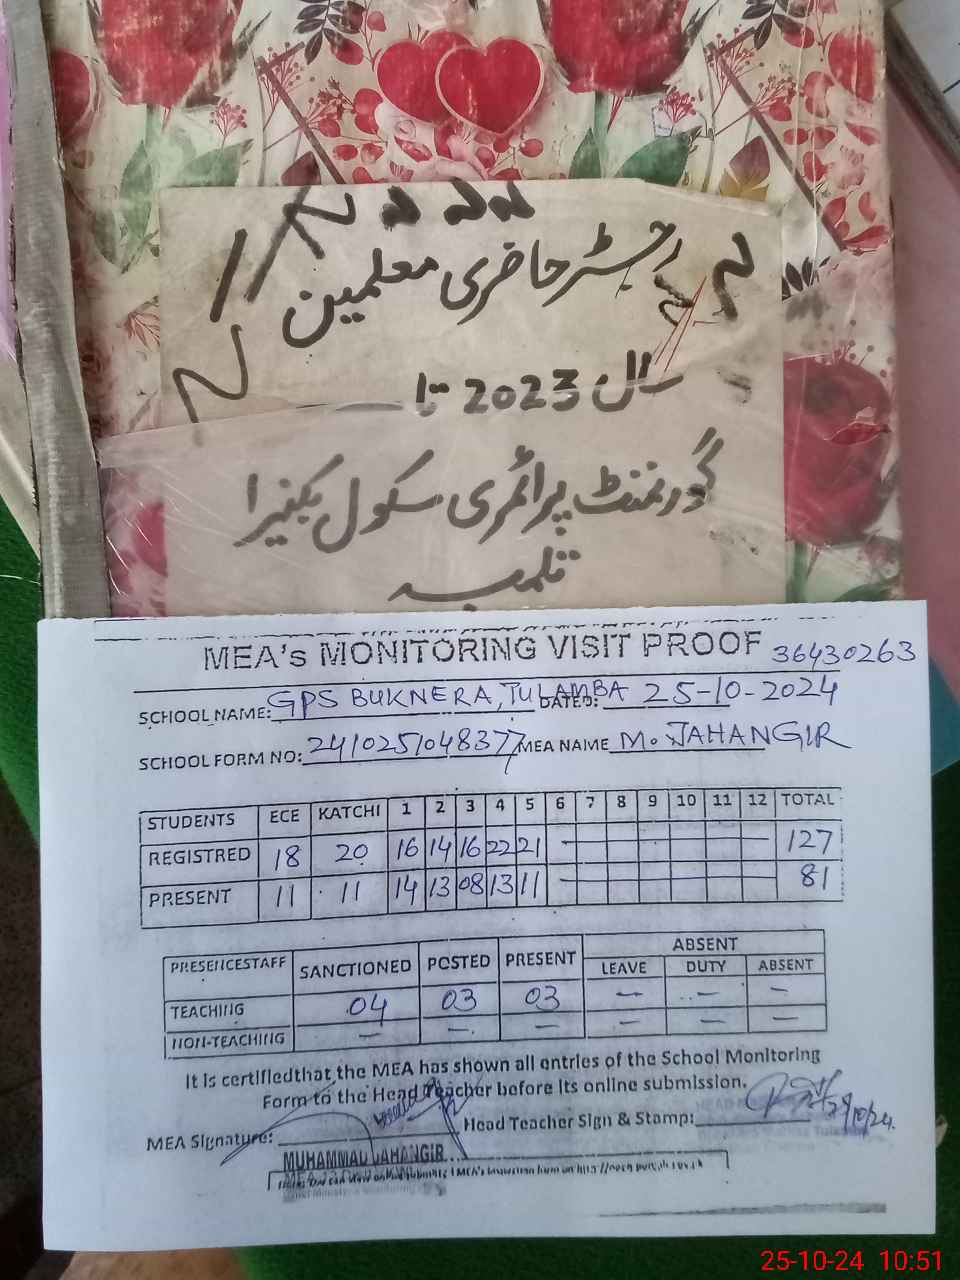 رجسٹر حاضری معلمین
سال 2023 تا
گورنمنٹ پرائمری سکول بکنیرا
تلمبہ
MEA's MONITORING VISIT PROOF 36430263
SCHOOL NAME: GPS BUKNERA, TULAMBA DATED: 25-10-2024
SCHOOL FORM NO: 2410251048377 MEA NAME M. JAHANGIR
STUDENTS ECE KATCHI 1 2 3 4 5 6 7 8 9 10 11 12 TOTAL
REGISTRED 18 20 16 14 16 22 21 127
PRESENT 11 11 14 13 08 13 11 81
ABSENT
PRESENCESTAFF SANCTIONED POSTED PRESENT LEAVE DUTY ABSENT
TEACHING 04 03 03 — — —
NON-TEACHING — — — — — —
It is certifiedthat the MEA has shown all entries of the School Monitoring
Form to the Head Teacher before its online submission.
MEA Signature: Head Teacher Sign & Stamp:
MUHAMMAD JAHANGIR
25-10-24 10:51